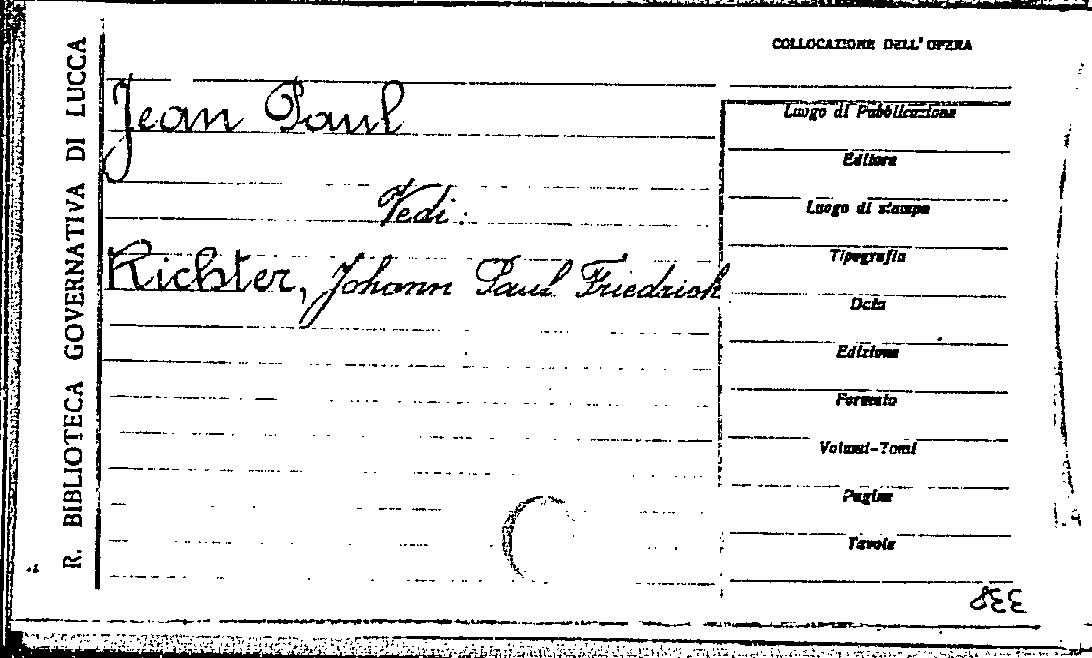 R. BIBLIOTECA GOVERNATIVA DI LUCCA
Jean Paul
Vedi:
Richter, Johann Paul Friedrich
COLLOCAZIONE DELL'OPERA
Luogo di Pubblicazione
Editore
Luogo di stampa
Tipografia
Data
Edizione
Formato
Volumi-Tomi
Pagine
Tavole
338